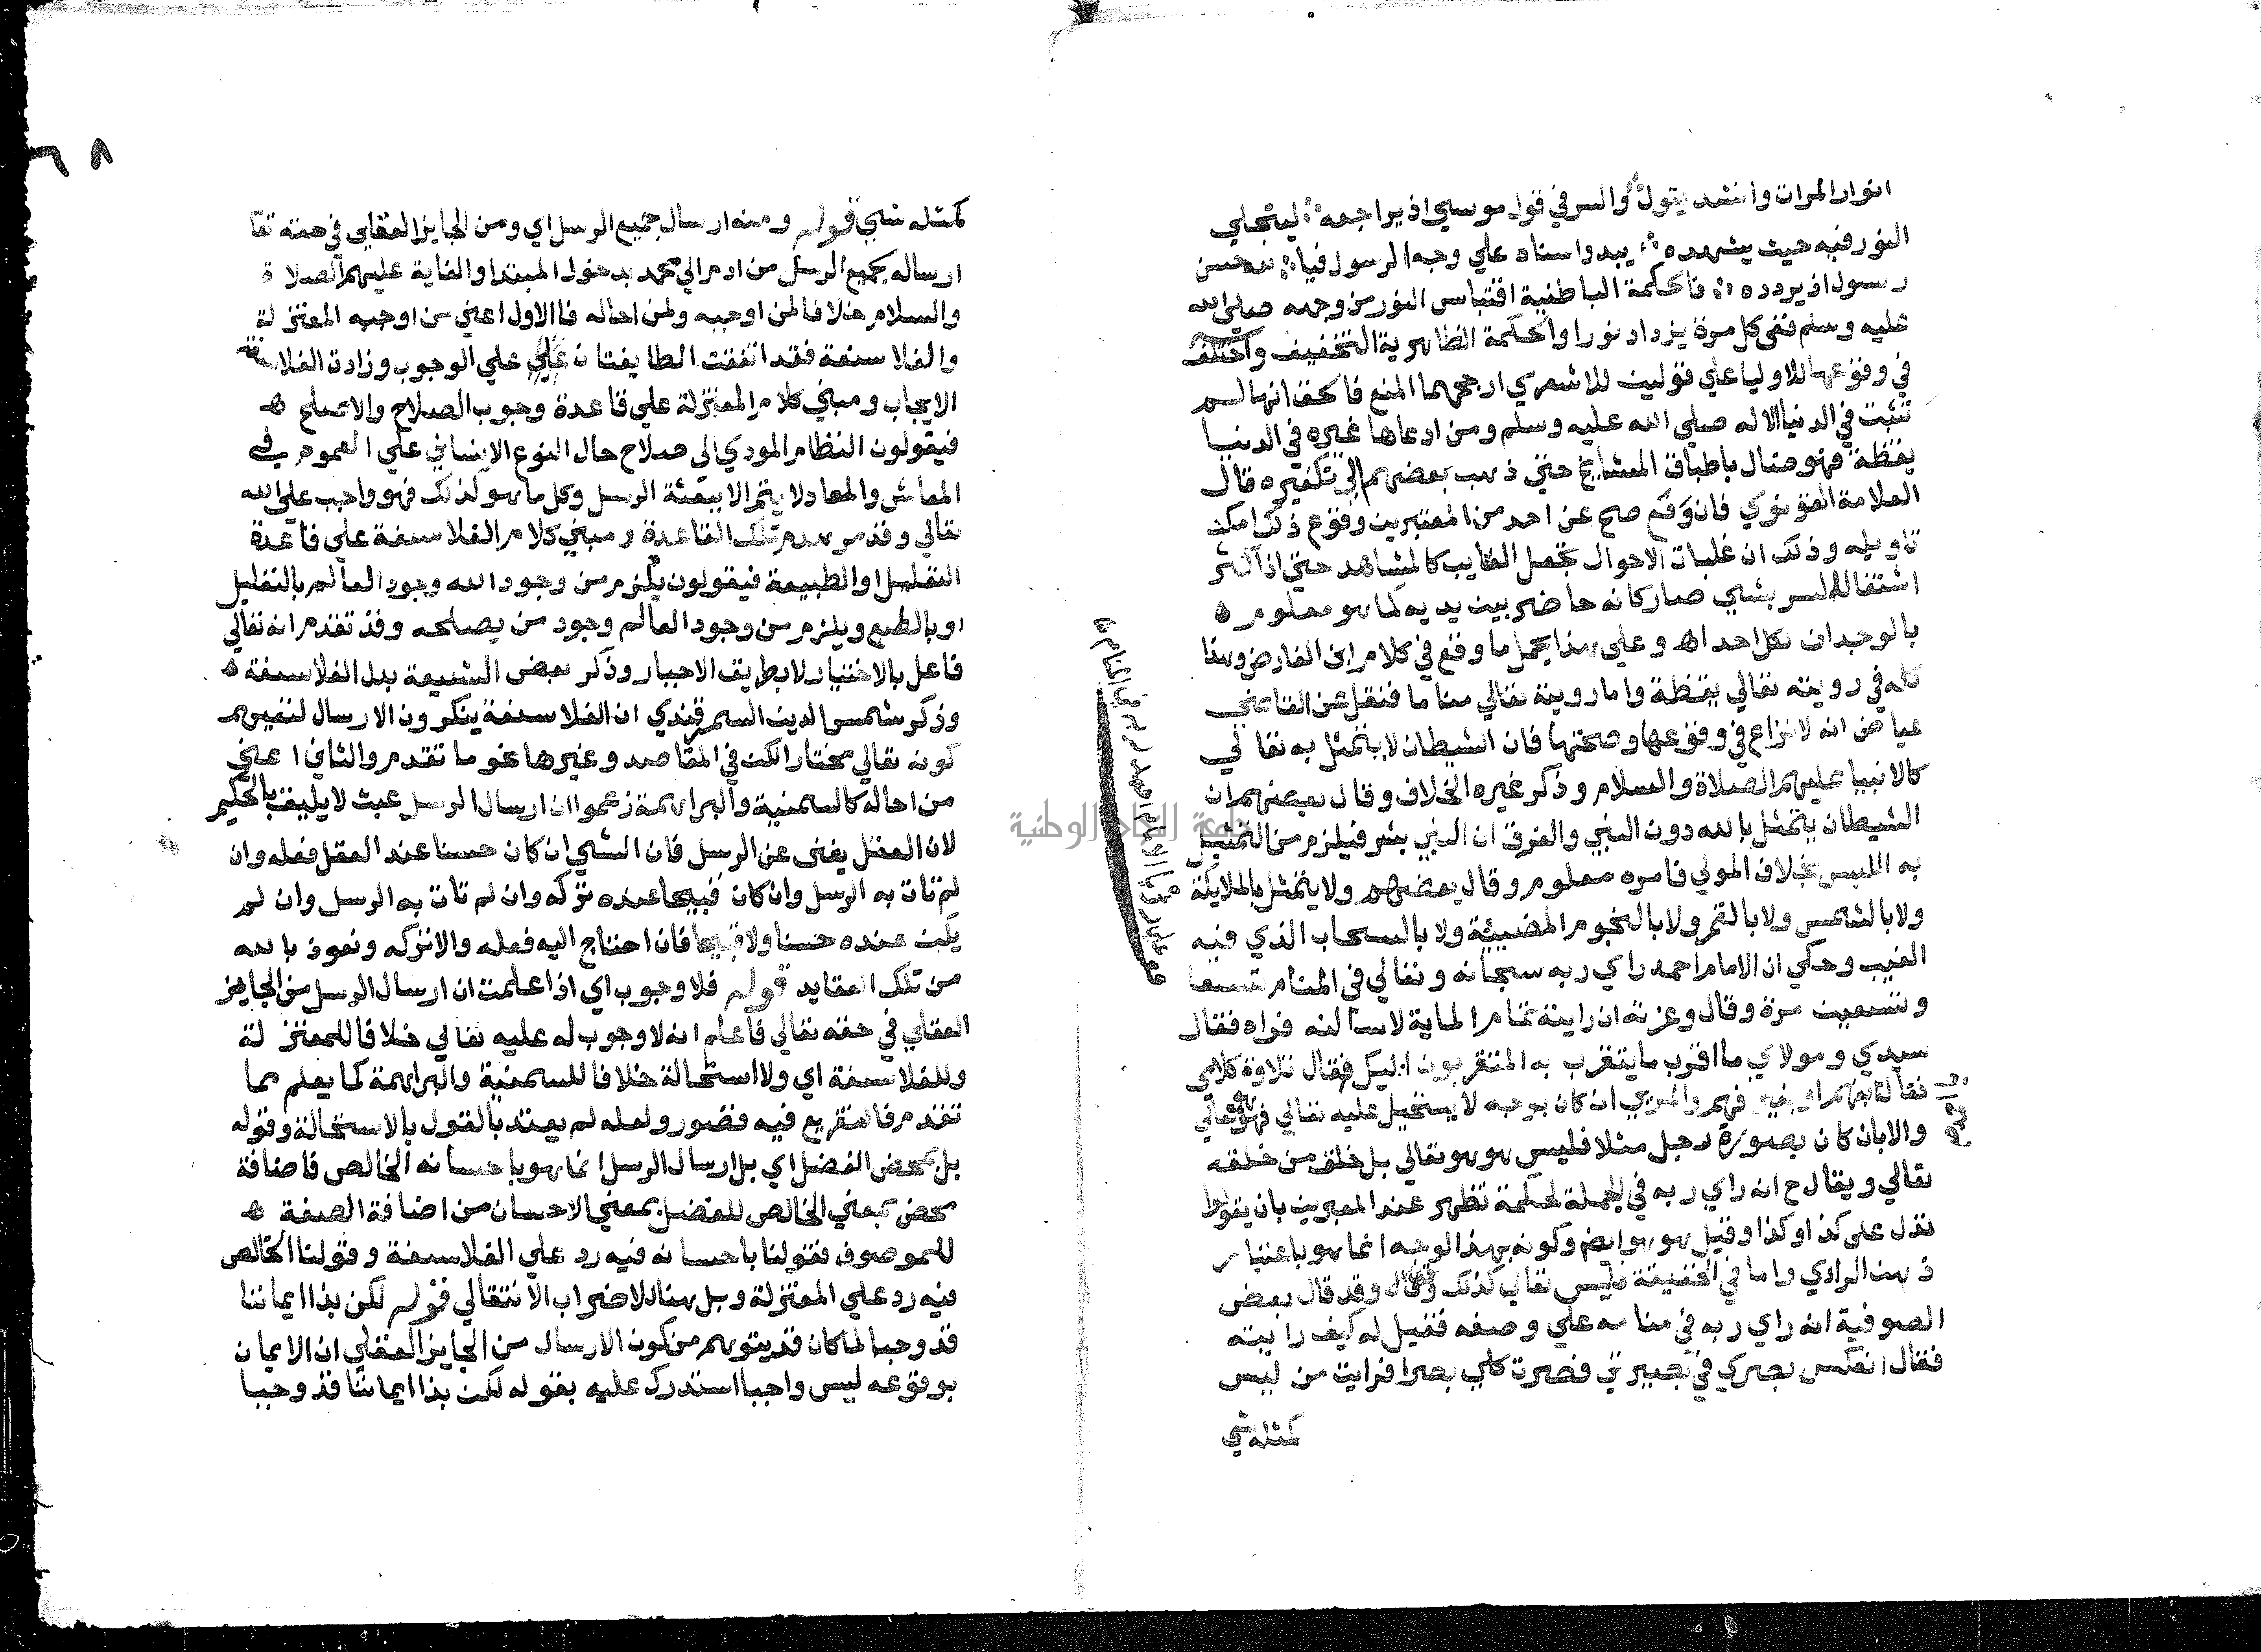 انوار المرات وانشد يقول والسر في قول موسي اذ يراجعه ليتجلي
النور فيه حيث يشهده يبدوا سناه علي وجه الرسول فيا حسن
رسول اذ يردده فالحكمة الباطنية اقتباس النور من وجهه صلي الله
عليه وسلم ففي كل مرة يزداد نورا والحكمة الظاهرية التخفيف واختلف
في وقوعها للاوليا علي قولين للاشعري ارجحهما المنع فالحق انها لم
تثبت في الدنيا الا له صلي الله عليه وسلم ومن ادعاها غيره في الدنيا
يقظة فهو ضال باطباق المشايخ حتي ذهب بعضهم الي تكفيره قال
العلامة القونوي فان وقع صح عن احد من المعتبرين وقوع ذلك امكن
تاويله وذلك ان غلبات الاحوال تجعل الغايب كالمشاهد حتي اذا كثر
اشتغال السر بشي صار كانه حاضر بين يديه كما هو معلوم ه
بالوجدان لكل احد اه وعلي هذا يحمل ما وقع في كلام ابن الفارض وهذا
كله في رويته تعالي يقظة واما رويته تعالي مناما فنقل عن القاضي
عياض انه لا نزاع في وقوعها وصحتها فان الشيطان لا يتمثل به تعالي
كالانبيا عليهم الصلاة والسلام وذكر غيره الخلاف وقال بعضهم ان
الشيطان يتمثل بالله دون النبي والفرق ان النبي بشر فيلزم من التمثيل
به اللبس بخلاف المولي فامره معلوم وقال بعضهم ولا يتمثل بالملايكة
ولا بالشمس ولا بالقمر ولا بالنجوم المضيئة ولا بالسحاب الذي فيه
الغيب وحكي ان الامام احمد راي ربه سبحانه وتعالي في المنام تسعا
وتسعين مرة وقال وعزته ان رايته تمام الماية لاسالنه فراه فقال
سيدي ومولاي ما اقرب ما يتقرب به المتقربون اليك فقال تلاوة كلامي
فقال بفهم او بغير فهم والمريي ان كان بوجه لا يستحيل عليه تعالي فهو تعالي
والا بان كان بصورة رجل مثلا فليس هو هو تعالي بل خلق من خلقه
تعالي ويقال ح انه راي ربه في الجملة لحكمة تظهر عند المعبرين بان يقولوا
تدل علي كذا او كذا وقيل هو هو ايضم وكونه بهذا الوجه انما هو باعتبار
ذهن الرادي واما في الحقيقة فليس تعالي كذلك وقد قال بعض
الصوفية انه راي ربه في منامه علي وصفه فقيل له كيف رايته
فقال انعكس بصري في بصيرتي فصرت كلي بصرا فرايت من ليس
كمثله شي
كمثله شي قوله ومنه ارسال جميع الرسل اي ومن الجايز العقلي في حقه تعا
ارساله لجميع الرسل من ادم الي محمد بدخول المبتدا والغاية عليهم الصلاة
والسلام خلافا لمن اوجبه ولمن احاله فالاول اعني من اوجبه المعتزلة
والفلاسفة فقد اتفقت الطايفتان علي علي الوجوب وزادت الفلاسفة
الايجاب ومبني كلام المعتزلة علي قاعدة وجوب الصلاح والاصلح ه
فيقولون النظام المودي الي صلاح حال النوع الانساني علي العموم في
المعاش والمعاد لا يتم الا ببعثة الرسل وكل ما هو كذلك فهو واجب علي الله
تعالي وقد مر هدم تلك القاعدة ومبني كلام الفلاسفة علي قاعدة
التعليل او الطبيعة فيقولون يلزم من وجود الله وجود العالم بالتعليل
او بالطبع ويلزم من وجود العالم وجود من يصلحه وقد تقدم انه تعالي
فاعل بالاختيار لا بطريق الاجبار وذكر بعض الشيعة بدل الفلاسفة ه
وذكر شمس الدين السمرقندي ان الفلاسفة ينكرون الارسال لنفيهم
كونه تعالي مختارا لكن في المقاصد وغيرها نحو ما تقدم والثاني اعني
من احاله كالسمنية والبراهمة زعموا ان ارسال الرسل عبث لا يليق بالحكيم
لان العقل يغني عن الرسل فان الشي ان كان حسنا عند العقل فعله وان
لم تات به الرسل وان كان قبيحا عنده تركه وان لم تات به الرسل وان لم
يكن عنده حسنا ولا قبيحا فان احتاج اليه فعله والا تركه ونعوذ بالله
من تلك العقايد قوله فلا وجوب اي اذا علمت ان ارسال الرسل من الجايز
العقلي في حقه تعالي فاعلم انه لا وجوب له عليه تعالي خلافا للمعتزلة
وللفلاسفة اي ولا استحالة خلافا للسمنية والبراهمة كما يعلم مما
تقدم فالتفريع فيه قصور ولعله لم يعتد بالقول بالاستحالة وقوله
بل بمحض الفضل اي بل ارسال الرسل انما هو باحسانه الخالص فاضافة
محض بمعني الخالص للفضل بمعني الاحسان من اضافة الصفة ه
للموصوف فقولنا باحسانه فيه رد علي الفلاسفة وقولنا الخالص
فيه رد علي المعتزلة وبل هنا للاضراب الانتقالي قوله لكن بذا ايماننا
قد وجبا لما كان قد يتوهم من كون الارسال من الجايز العقلي ان الايمان
بوقوعه ليس واجبا استدرك عليه بقوله لكن بذا ايماننا قد وجبا